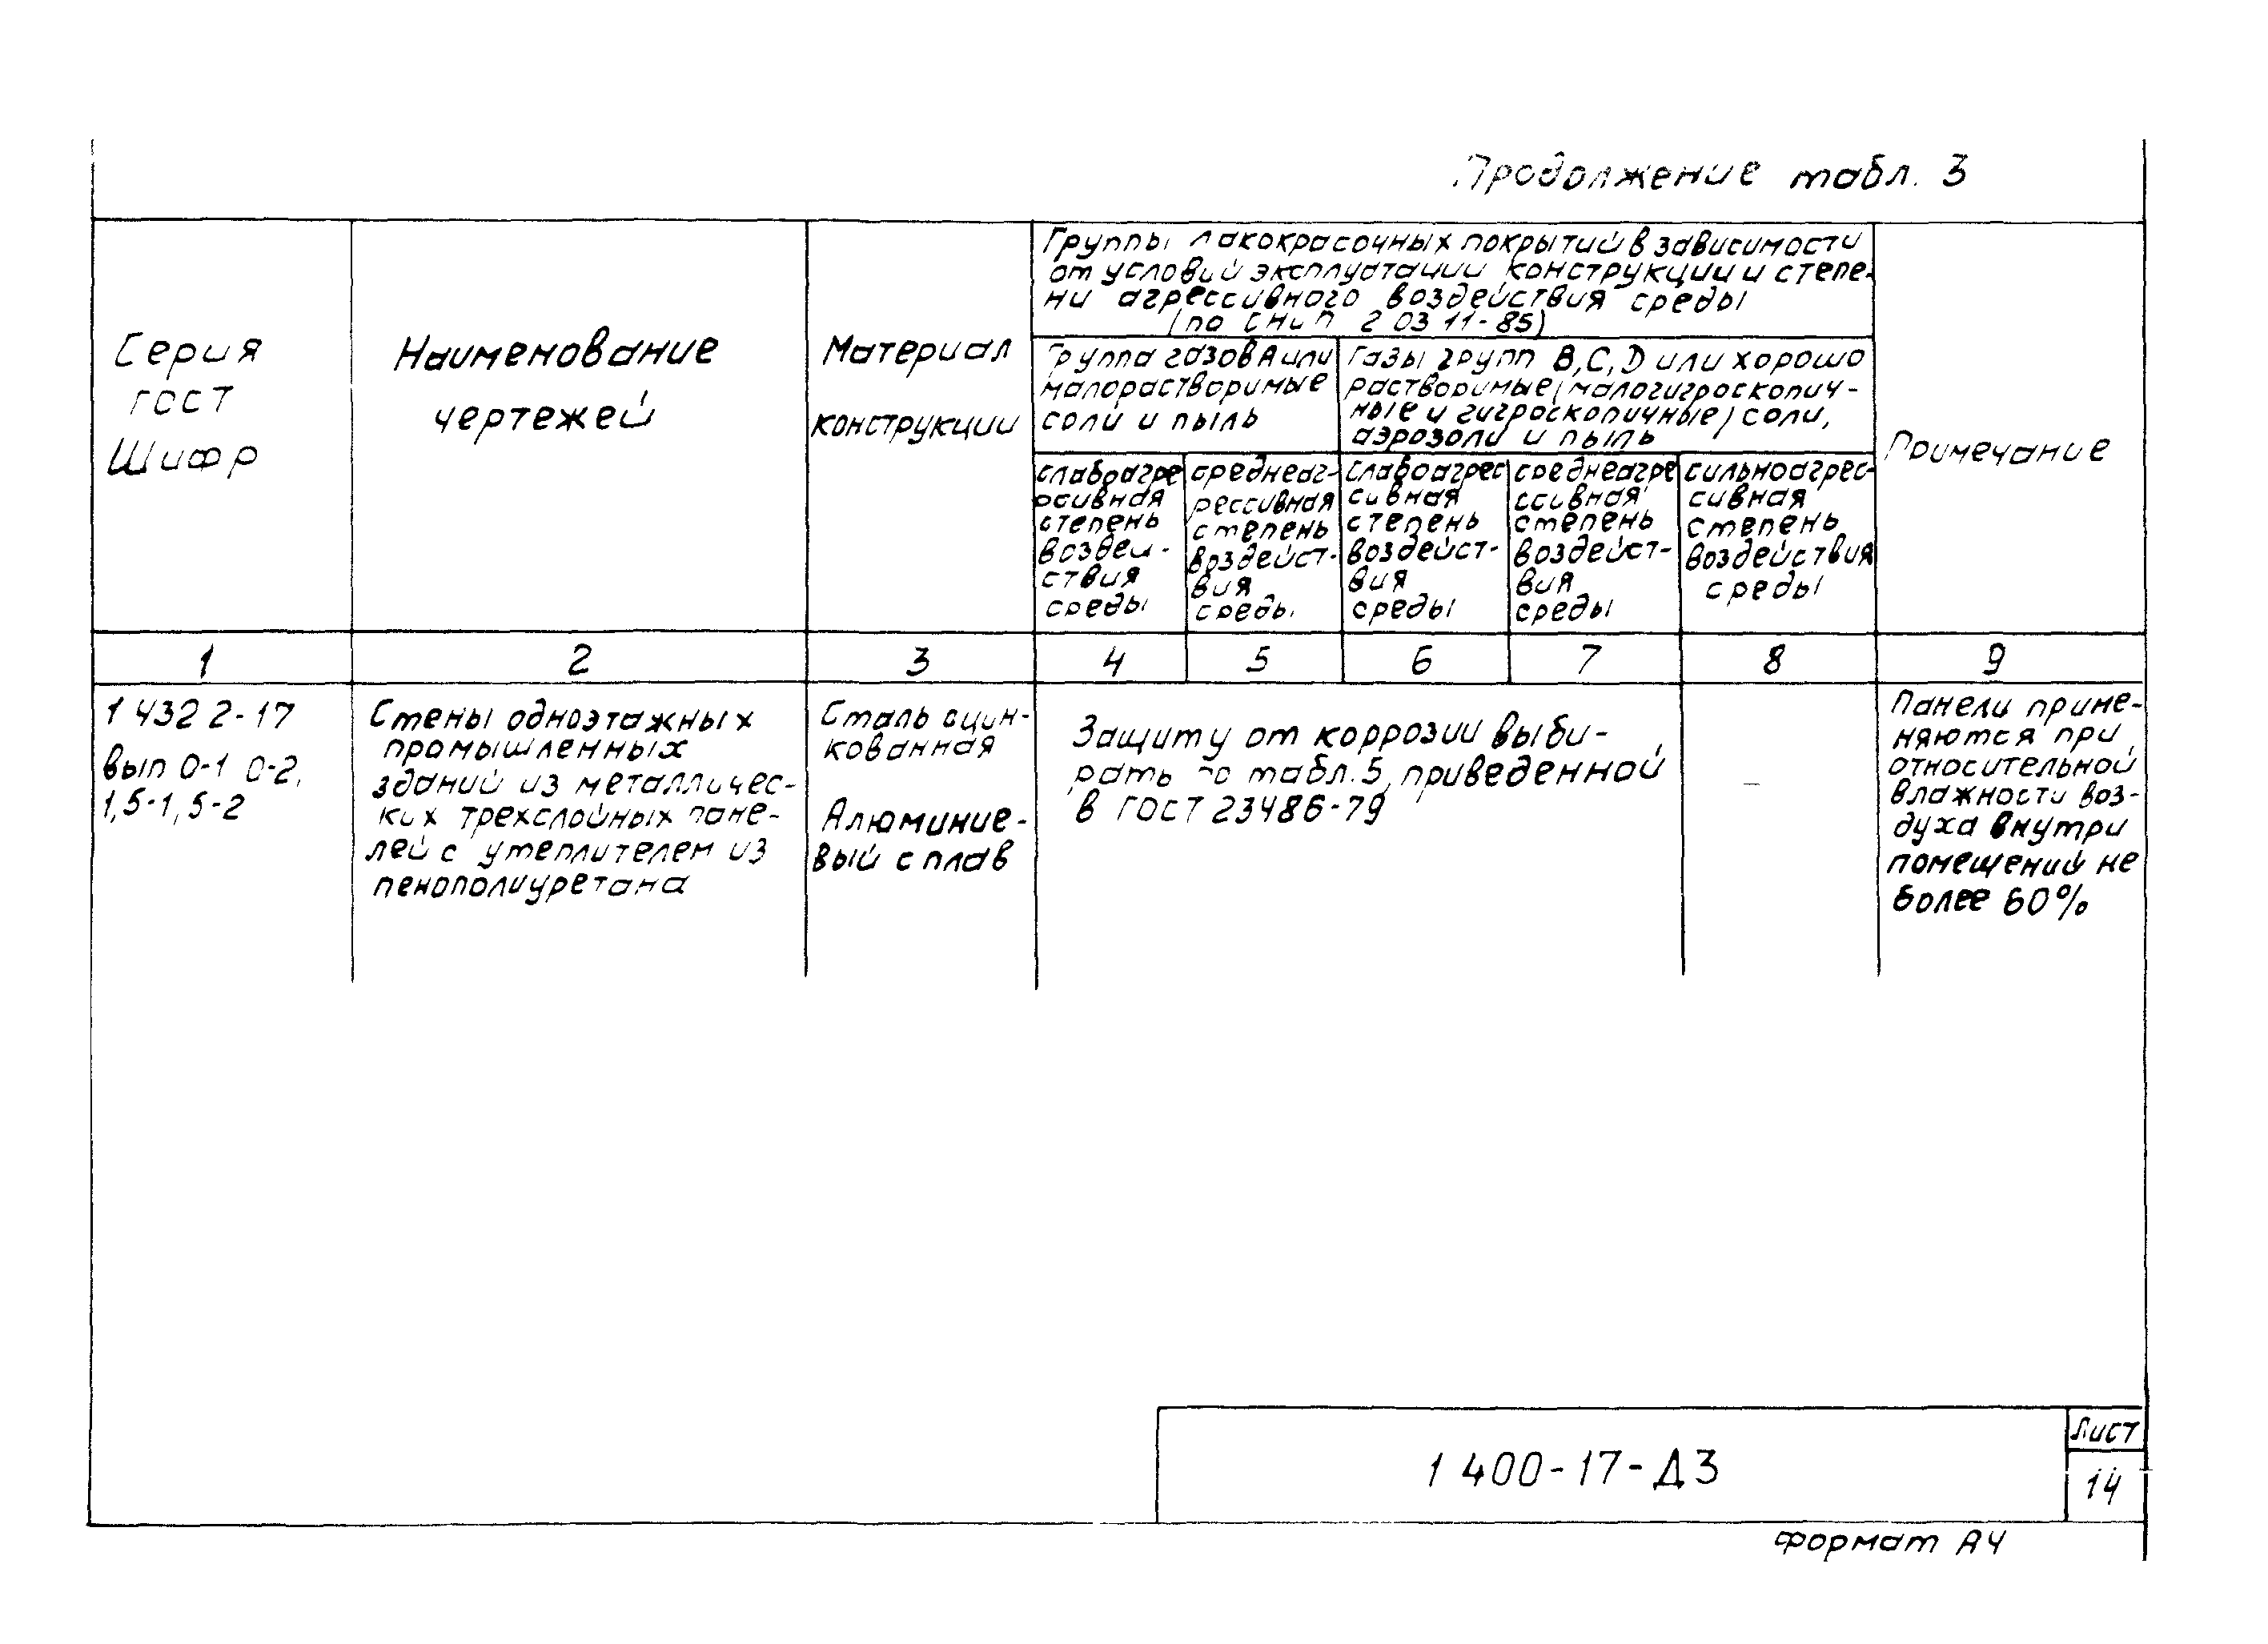 Продолжение табл. 3
Серия
ГОСТ
Шифр
Наименование
чертежей
Материал
конструкции
Группы лакокрасочных покрытий в зависимости
от условий эксплуатации конструкции и степе-
ни агрессивного воздействия среды
(по СНиП 2 03 11-85)
Группа газов А или
малорастворимые
соли и пыль
Газы групп В, С, D или хорошо
растворимые (малогигроскопич-
ные и гигроскопичные) соли,
аэрозоли и пыль
слабоагре
ссивная
степень
воздей-
ствия
среды
среднеаг-
рессивная
степень
воздейст-
вия
среды
слабоагрес
сивная
степень
воздейст-
вия
среды
среднеагре
ссивная
степень
воздейст-
вия
среды
сильноагрес-
сивная
степень
воздействия
среды
Примечание
1 2 3 4 5 6 7 8 9
1 432 2-17
вып 0-1 0-2,
1,5-1, 5-2
Стены одноэтажных
промышленных
зданий из металличес-
ких трехслойных пане-
лей с утеплителем из
пенополиуретана
Сталь оцин-
кованная
Алюминие-
вый сплав
Защиту от коррозии выби-
рать по табл. 5, приведенной
в ГОСТ 23486-79
–
Панели приме-
няются при
относительной
влажности воз-
духа внутри
помещений не
более 60%
1 400-17-Д3
Лист
14
Формат А4